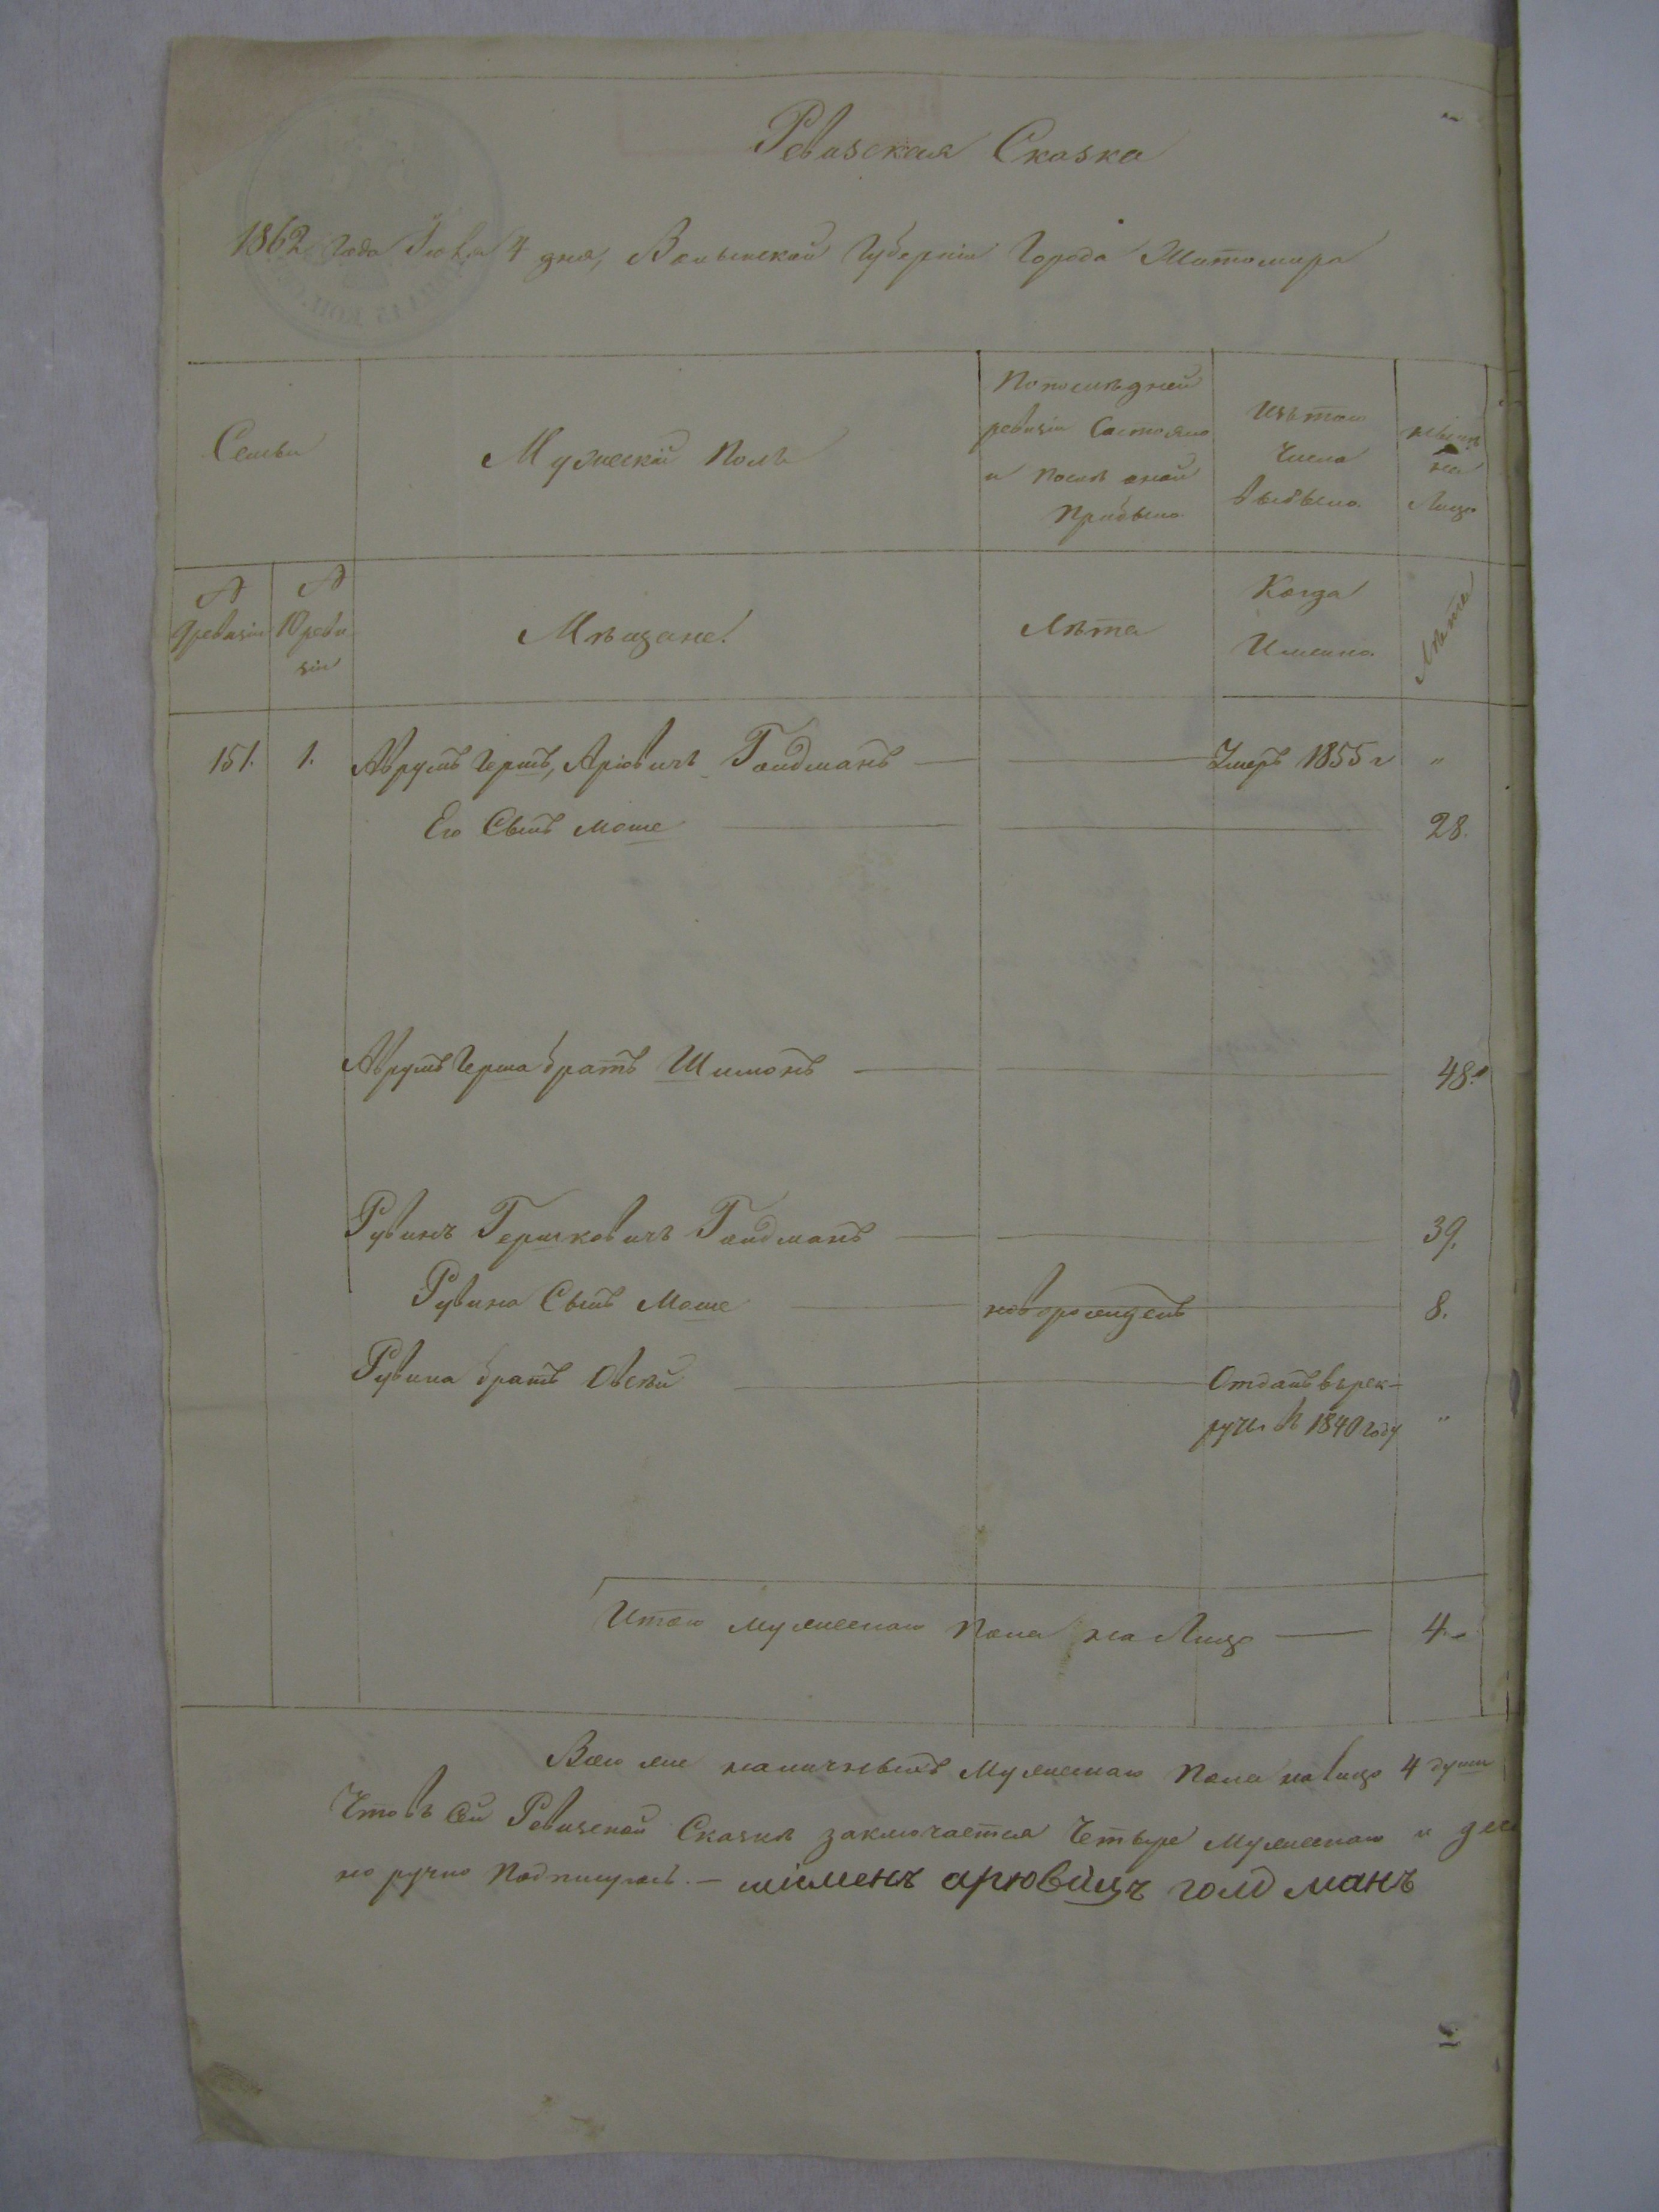 Ревизская Сказка
1862 года Июля 4 дня, Волынской Губерніи Города Житомира
Семьи
Мужескій Полъ
По последней
ревизіи Состояло
и после оной
Прибыло
Изъ того
Числа
выбыло.
ныне
на
Лицо
№
9 ревизіи
№
10 реви
зіи
Мѣщане!
Лѣта
Когда
Именно.
Лѣта
151. 1. Аврумъ Гершъ, Аріовичъ Голдманъ Умеръ 1855 г "
Его Сынъ Моше 28.
Аврумъ Герша братъ Шимонъ 48.
Рувинъ Гершковичъ Голдманъ 39.
Рувина Сынъ Моше новорожденъ 8.
Рувина братъ Овсѣй Отданъ въ рек-
руты въ 1840 году "
Итого мужескаго Пола на Лицо 4.
Всего же наличныхъ Мужескаго Пола на лицо 4 души
Что въ Сей Ревизской Сказке заключается Четыре Мужескаго и
но ручно Подпищемъ. — шіменъ арювицъ голд манъ